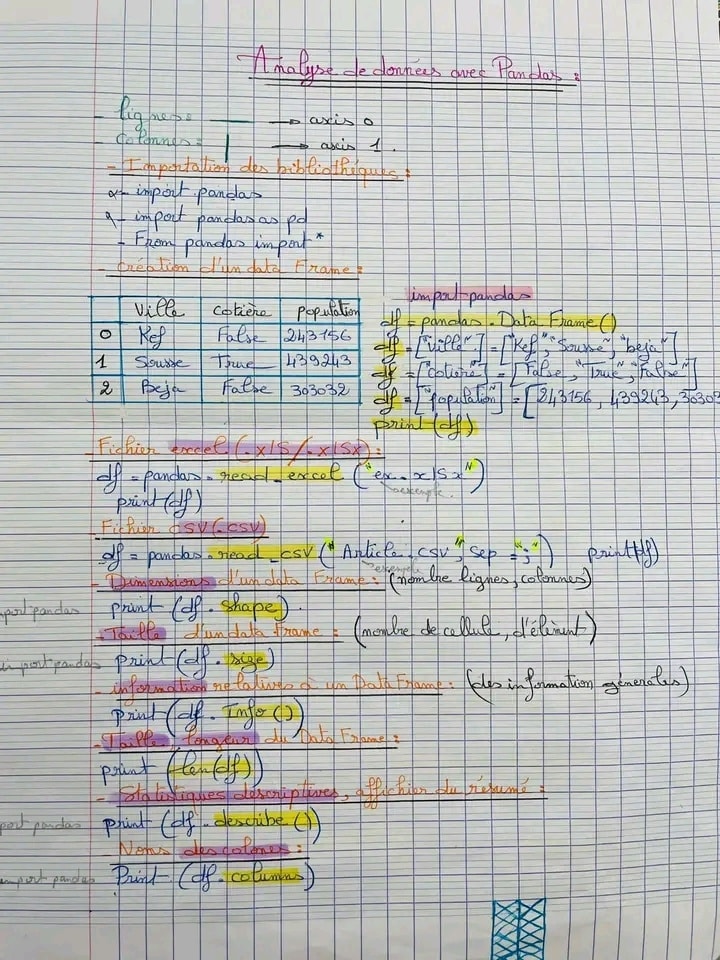 Analyse de données avec Pandas :
- lignes: → axis 0
- colonnes: → axis 1.
- Importation des bibliothéques :
- import pandas
- import pandas as pd
- From pandas import *
- création d'un data Frame :
Ville cotière population
0 Kef False 243156
1 Sousse True 439243
2 Beja False 303032
import pandas
df = pandas.Data Frame()
df = ["Ville"] = ["Kef", "Sousse", "beja"]
df = ["cotière"] = [False, "True", "False"]
df = ["population"] = [243156, 439243, 3030
print(df)
- Fichier excel (.xlS/.xlSx) :
df = pandas.read_excel ("ex.xlSx")
exemple.
print(df)
- Fichier CSV (.csv)
df = pandas.read_CSV ("Article.csv", Sep = ";") print(df)
exemple
- Dimensions d'un data Frame : (nombre lignes, colonnes)
port pandas print (df.shape).
- Taille d'un data Frame : (nombre de cellule, d'élément)
import pandas print (df.size)
- information relatives à un Data Frame : (des information génerales)
print (df.Info())
- Taille, longeur du Data Frame :
print (len(df))
- Statistiques descriptives, affichier du résumé :
port pandas print (df.describe())
Noms des colones :
import pandas Print (df.columns)